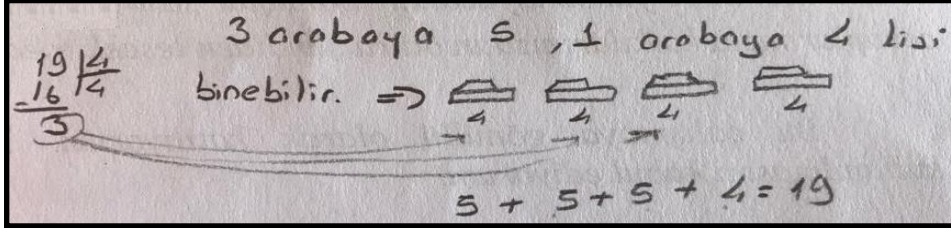 3 arabaya 5, 1 arabaya 4 kişi
binebilir. ⇒
4 4 4 4
19 | 4
-16 | 4
3
5 + 5 + 5 + 4 = 19